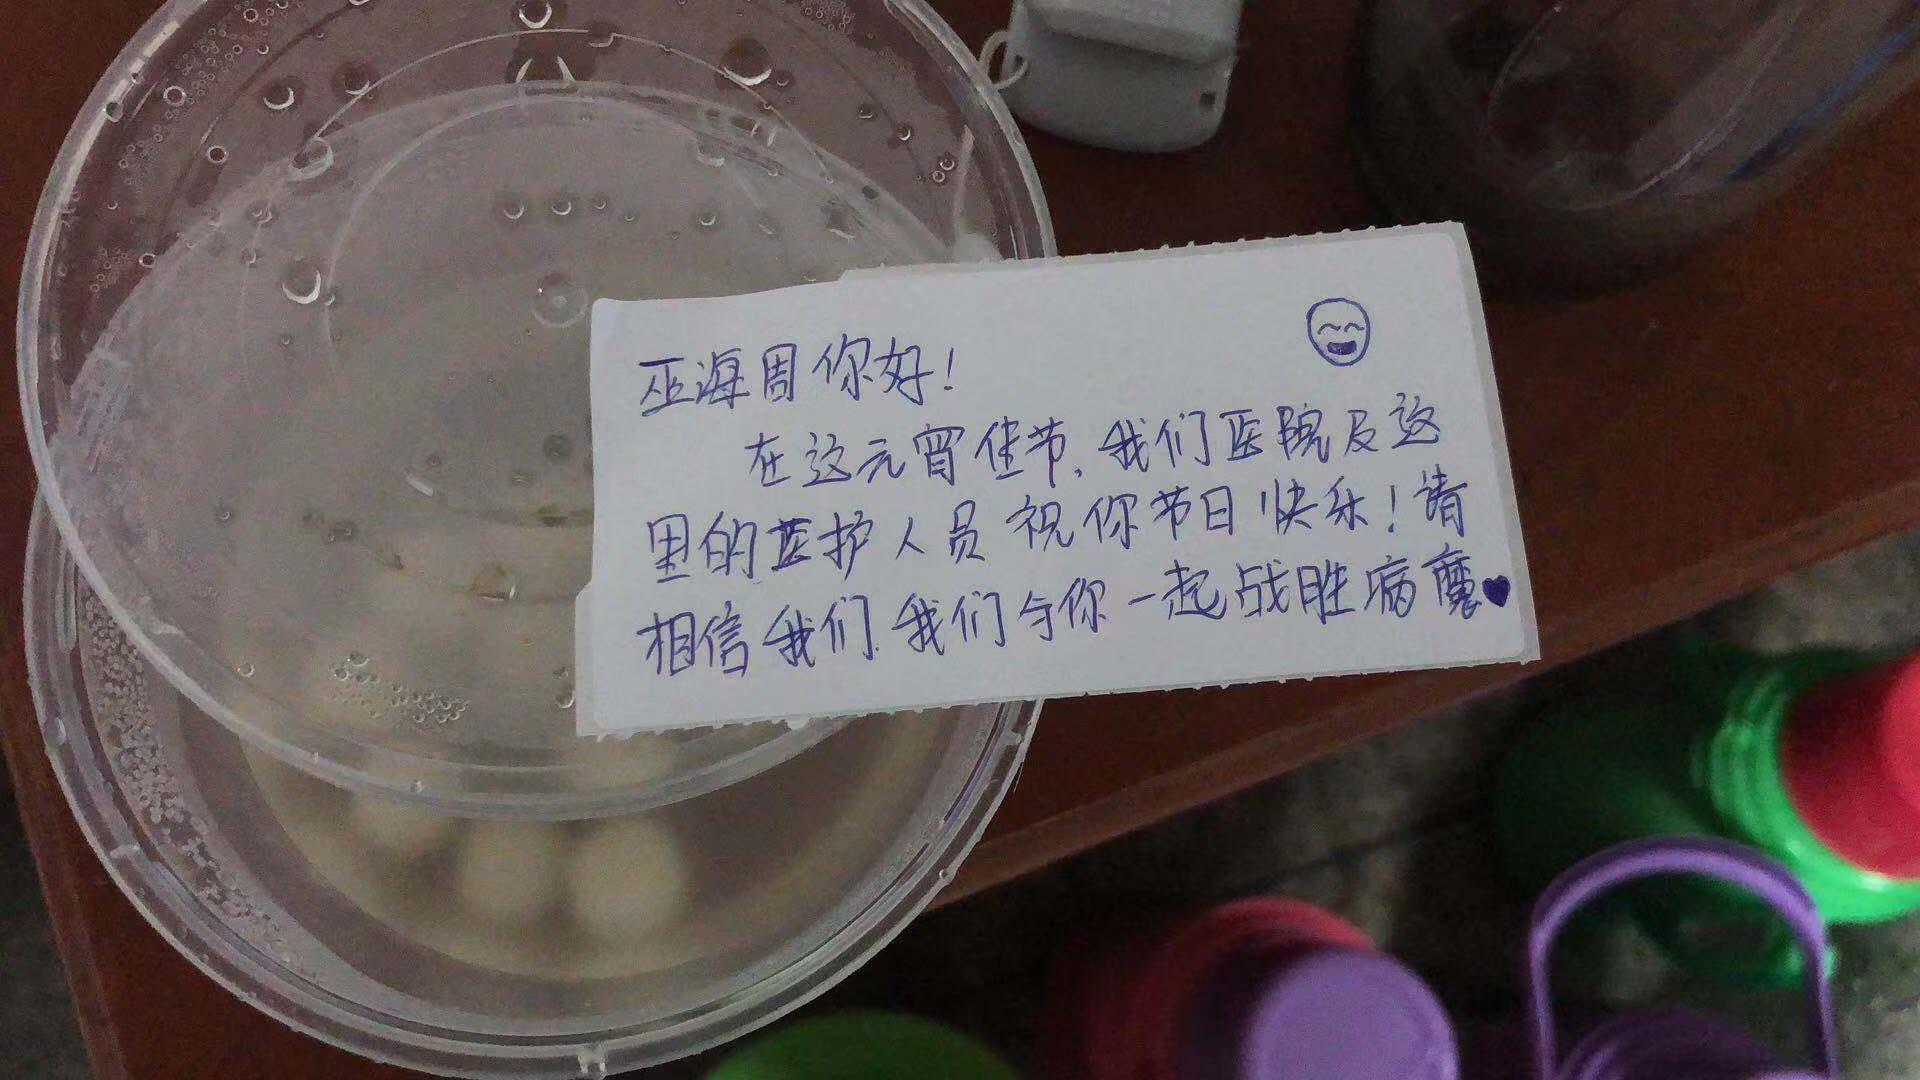 巫海周你好！
在这元宵佳节，我们医院及这
里的医护人员祝你节日快乐！请
相信我们，我们与你一起战胜病魔